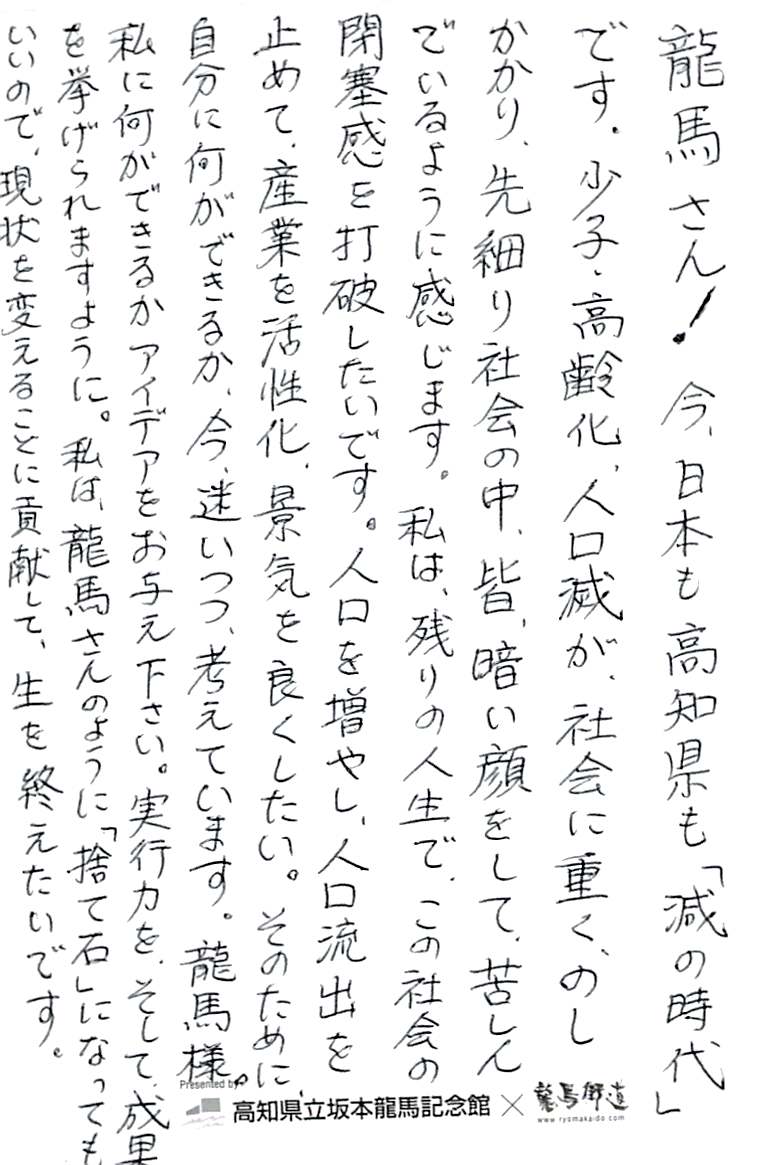 龍馬さん!今、日本も高知県も「減の時代」
です。少子・高齢化、人口減が、社会に重く、のし
かかり、先細り社会の中、皆、暗い顔をして、苦しん
でいるように感じます。私は、残りの人生で、この社会の
閉塞感を打破したいです。人口を増やし、人口流出を
止めて、産業を活性化、景気を良くしたい。そのために、
自分に何ができるか、今、迷いつつ、考えています。龍馬様。
私に何ができるかアイデアをお与え下さい。実行力を、そして、成果
を挙げられますように。私は、龍馬さんのように「捨て石」になっても
いいので、現状を変えることに貢献して、生を終えたいです。
Presented by
高知県立坂本龍馬記念館×龍馬街道
www.ryomakaido.com